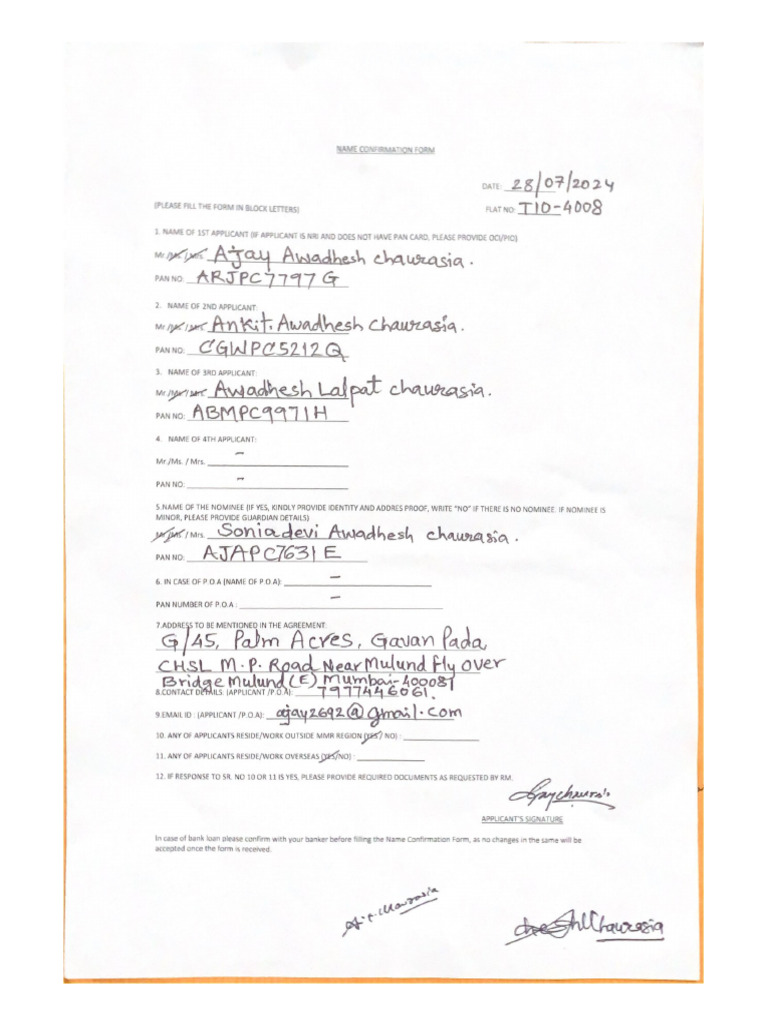 NAME CONFIRMATION FORM
DATE: 28/07/2024
(PLEASE FILL THE FORM IN BLOCK LETTERS)
FLAT NO: T10-4008
1. NAME OF 1ST APPLICANT (IF APPLICANT IS NRI AND DOES NOT HAVE PAN CARD, PLEASE PROVIDE OCI/PIO)
Mr./Ms./Mrs. Ajay Awadhesh chaurasia.
PAN NO: ARJPC7797G
2. NAME OF 2ND APPLICANT:
Mr./Ms./Mrs. Ankit. Awadhesh chaurasia.
PAN NO: CGWPC5212Q
3. NAME OF 3RD APPLICANT:
Mr./Ms./Mrs. Awadhesh Lalpat chaurasia.
PAN NO: ABMPC9971H
4. NAME OF 4TH APPLICANT:
Mr./Ms. / Mrs. –
PAN NO: –
5.NAME OF THE NOMINEE (IF YES, KINDLY PROVIDE IDENTITY AND ADDRES PROOF, WRITE "NO" IF THERE IS NO NOMINEE. IF NOMINEE IS
MINOR, PLEASE PROVIDE GUARDIAN DETAILS)
Mr./Ms. / Mrs. Soniadevi Awadhesh chaurasia.
PAN NO: AJAPC7631E
6. IN CASE OF P.O.A (NAME OF P.O.A): –
PAN NUMBER OF P.O.A : –
7.ADDRESS TO BE MENTIONED IN THE AGREEMENT:
G/45, Palm Acres, Gavan Pada,
CHSL M.P. Road Near Mulund fly over
Bridge Mulund (E) Mumbai-400081
8.CONTACT DETAILS: (APPLICANT /P.O.A): 7977446061.
9.EMAIL ID : (APPLICANT /P.O.A): ajay2692@gmail.com
10. ANY OF APPLICANTS RESIDE/WORK OUTSIDE MMR REGION (YES / NO) :
11. ANY OF APPLICANTS RESIDE/WORK OVERSEAS (YES/NO) :
12. IF RESPONSE TO SR. NO 10 OR 11 IS YES, PLEASE PROVIDE REQUIRED DOCUMENTS AS REQUESTED BY RM.
APPLICANT'S SIGNATURE
In case of bank loan please confirm with your banker before filling the Name Confirmation Form, as no changes in the same will be
accepted once the form is received.
Chaurasia